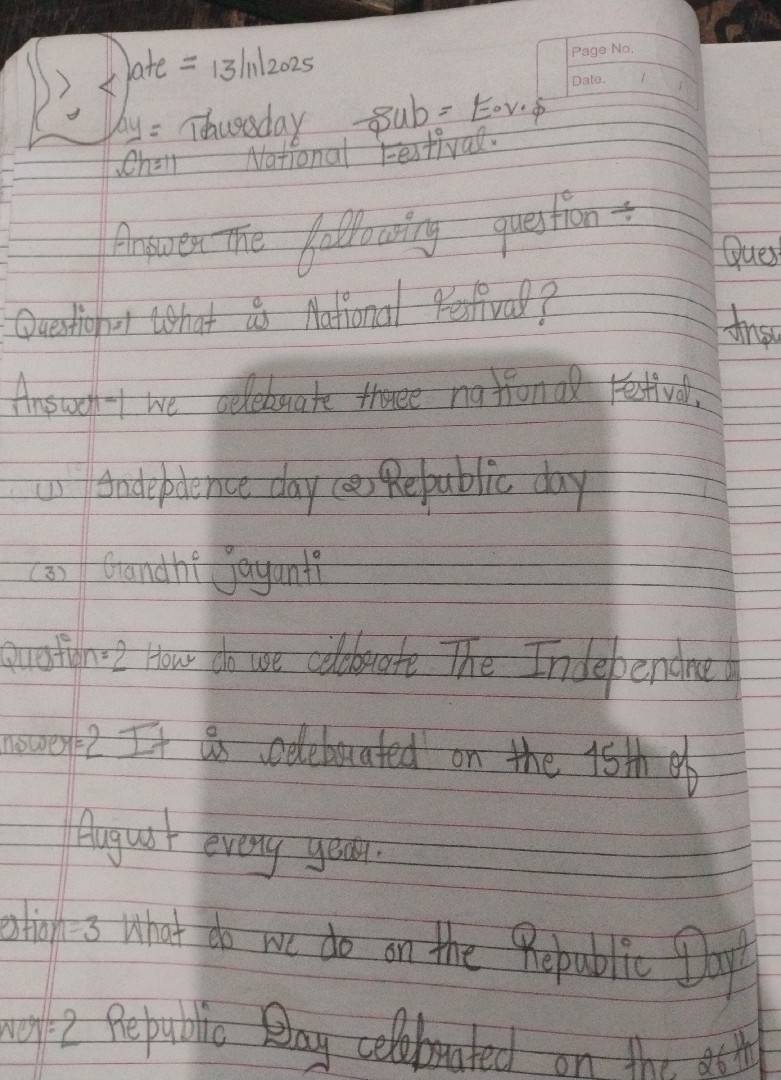 Page No.
Date. / /
Date = 13/11/2025
Day = Thursday Sub = E.v.s
Ch=11 National Festival.
Answer The following question ÷
Question=1 What is National Festival?
Answer-1 We celebrate three national Festival.
(1) Indepdence day (2) Republic day
(3) Gandhi jayanti
Question=2 How do we celebrate The Independnce
nswer=2 It is celebrated on the 15th of
August every year.
estion=3 What do we do on the Republic Day?
wer=2 Republic Day celebrated on the 26th
Ques
Answ